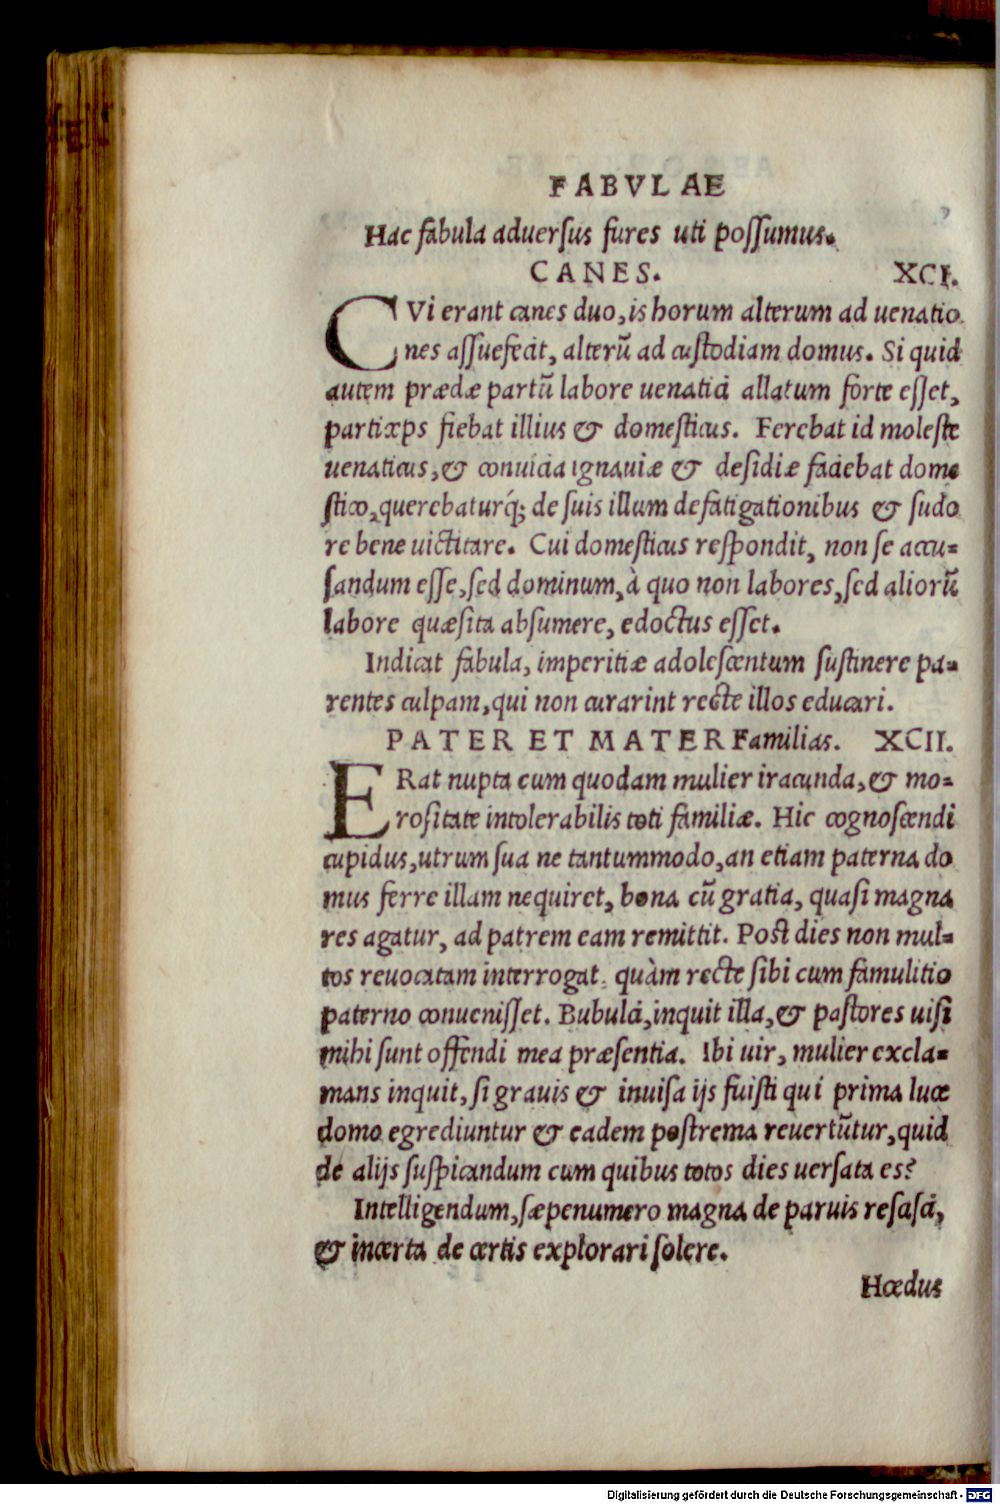 FABVLAE
Hac fabula aduersus fures uti possumus.
CANES. XCI.
CVi erant canes duo, is horum alterum ad uenatio
nes assuefecit, alterũ ad custodiam domus. Si quid
autem prædæ partũ labore uenatici allatum forte esset,
particeps fiebat illius & domesticus. Ferebat id moleste
uenaticus, & conuicia ignauiæ & desidiæ faciebat dome
stico, querebaturq́; de suis illum defatigationibus & sudo
re bene uictitare. Cui domesticus respondit, non se accu=
sandum esse, sed dominum, à quo non labores, sed aliorũ
labore quæsita absumere, edoctus esset.
Indicat fabula, imperitiæ adolescentum sustinere pa=
rentes culpam, qui non curarint recte illos educari.
PATER ET MATER Familias. XCII.
ERat nupta cum quodam mulier iracunda, & mo=
rositate intolerabilis toti familiæ. Hic cognoscendi
cupidus, utrum sua ne tantummodo, an etiam paterna do
mus ferre illam nequiret, bona cũ gratia, quasi magna
res agatur, ad patrem eam remittit. Post dies non mul=
tos reuocatam interrogat, quàm recte sibi cum famulitio
paterno conuenisset. Bubulci, inquit illa, & pastores uisi
mihi sunt offendi mea præsentia. Ibi uir, mulier excla=
mans inquit, si grauis & inuisa ijs fuisti qui prima luce
domo egrediuntur & eadem postrema reuertũtur, quid
de alijs suspicandum cum quibus totos dies uersata es?
Intelligendum, sæpenumero magna de paruis resasci,
& incerta de certis explorari solere.
Hœdus
Digitalisierung gefördert durch die Deutsche Forschungsgemeinschaft - DFG